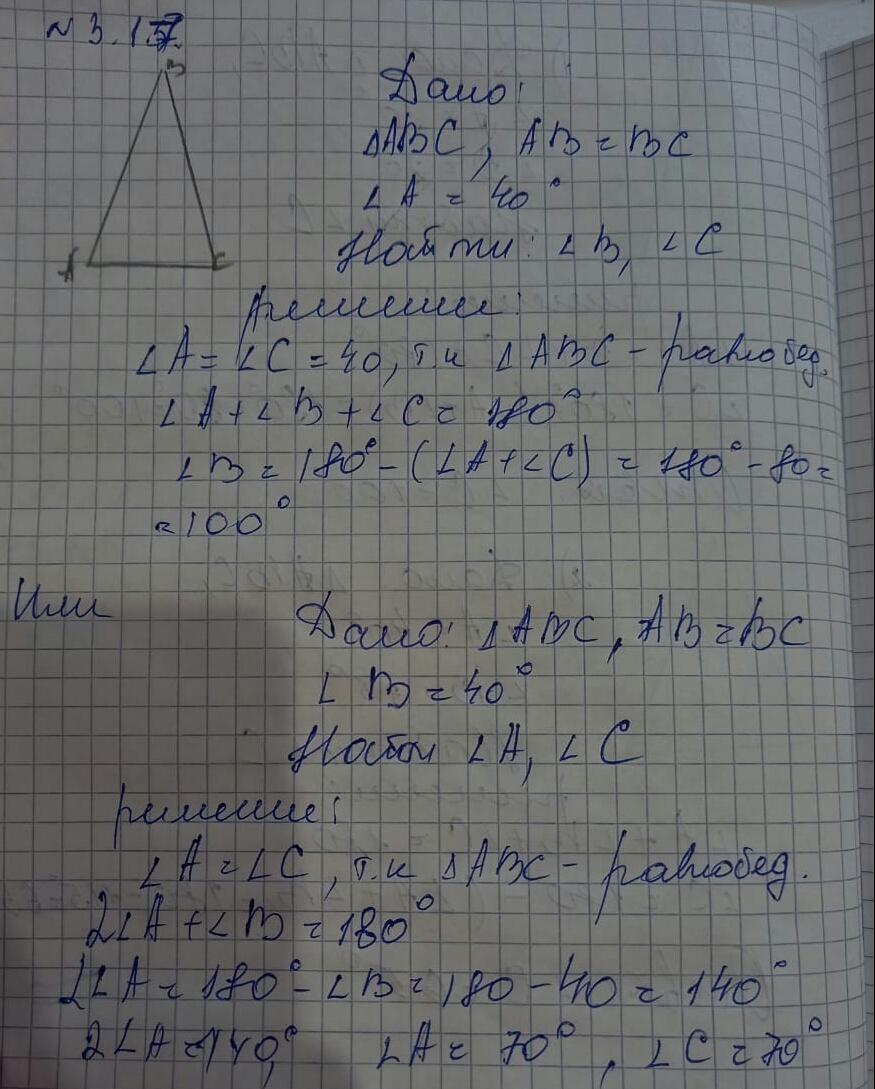 N 3.157.
B
A
C
Дано:
△ABC, AB = BC
∠A = 40°
Найти: ∠B, ∠C
Решение:
∠A = ∠C = 40, т.к △ABC - равнобед.
∠A + ∠B + ∠C = 180°
∠B = 180° - (∠A + ∠C) = 180° - 80 =
= 100°
Или
Дано: △ABC, AB = BC
∠B = 40°
Найти ∠A, ∠C
решение:
∠A = ∠C, т.к △ABC - равнобед.
2∠A + ∠B = 180°
2∠A = 180° - ∠B = 180 - 40 = 140°
2∠A = 140°, ∠A = 70°, ∠C = 70°